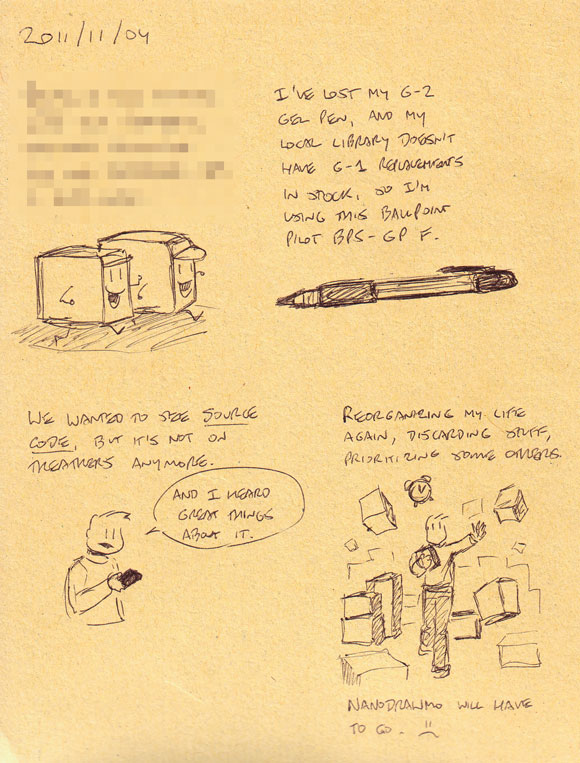 2011/11/04
I'VE LOST MY G-2
GEL PEN, AND MY
LOCAL LIBRARY DOESN'T
HAVE G-1 REPLACEMENTS
IN STOCK, SO I'M
USING THIS BALLPOINT
PILOT BPS-GP F.
WE WANTED TO SEE SOURCE
CODE, BUT IT'S NOT ON
THEATHERS ANYMORE.
AND I HEARD
GREAT THINGS
ABOUT IT.
REORGANIZING MY LIFE
AGAIN, DISCARDING STUFF,
PRIORITIZING SOME OTHERS.
NANODRAWMO WILL HAVE
TO GO. :(